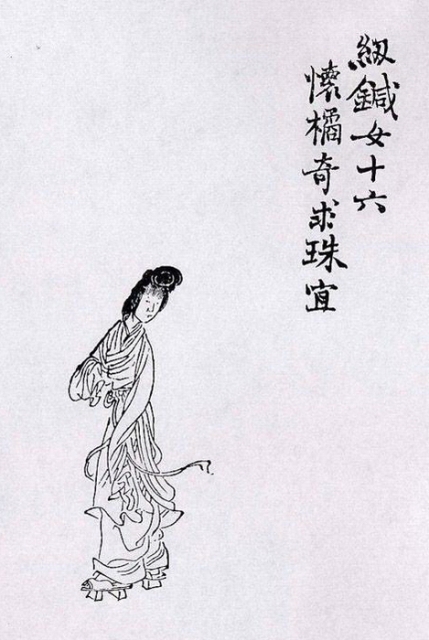 纫鍼女十六
懷橘奇求珠宜